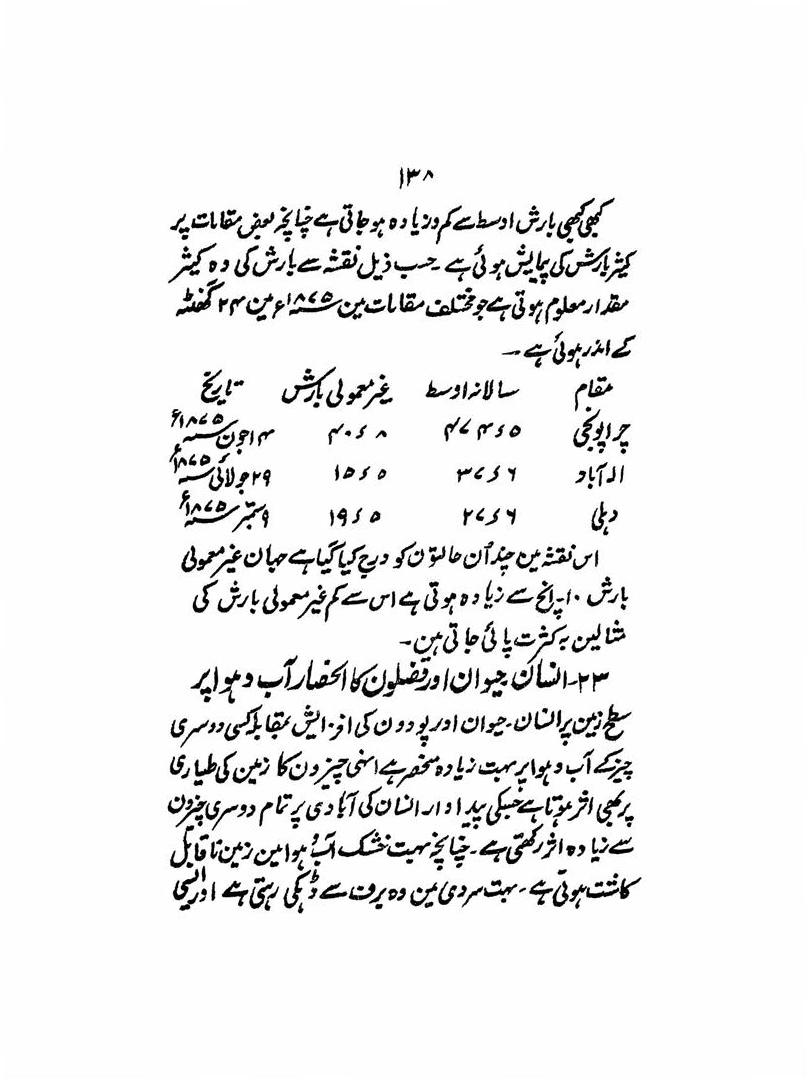 ۱۳۸
کبھی کبھی بارش اوسط سے کم و زیادہ ہو جاتی ہے چنانچہ بعض مقامات پر
کثیر بارش کی پیمایش ہوئی ہے ۔ حسب ذیل نقشہ سے بارش کی وہ کثیر
مقدار معلوم ہوتی ہے جو مختلف مقامات مین ۱۸۷۵ء مین ۲۴ گھنٹہ
کے اندر ہوئی ہے ۔
مقام سالانہ اوسط غیر معمولی بارش تاریخ
چراپونجی ۴۷۴ء۵ ۴۰ء۸ ۱۴ جون ۱۸۷۵ء
الہ آباد ۳۷ء۶ ۱۵ء۵ ۲۹ جولائی ۱۸۷۵ء
دہلی ۲۷ء۶ ۱۹ء۵ ۹ ستمبر ۱۸۷۵ء
اس نقشہ مین چند اُن حالتون کو درج کیا گیا ہے جہان غیر معمولی
بارش ۱۰۔ انچ سے زیادہ ہوتی ہے اس سے کم غیر معمولی بارش کی
مثالین بہ کثرت پائی جاتی ہین ۔
۲۳۔ انسان حیوان اور فصلون کا انحصار آب و ہوا پر
سطح زمین پر انسان ۔ حیوان اور پودون کی افزایش بمقابلہ کسی دوسری
چیز کے آب و ہوا پر بہت زیادہ منحصر ہے انہی چیزون کا زمین کی طیاری
پر بھی اثر ہوتا ہے جسکی پیداوار انسان کی آبادی پر تمام دوسری چیزون
سے زیادہ اثر رکھتی ہے ۔ چنانچہ بہت خشک آب و ہوا مین زمین ناقابل
کاشت ہوتی ہے ۔ بہت سردی مین وہ برف سے ڈہکی رہتی ہے اور ایسی